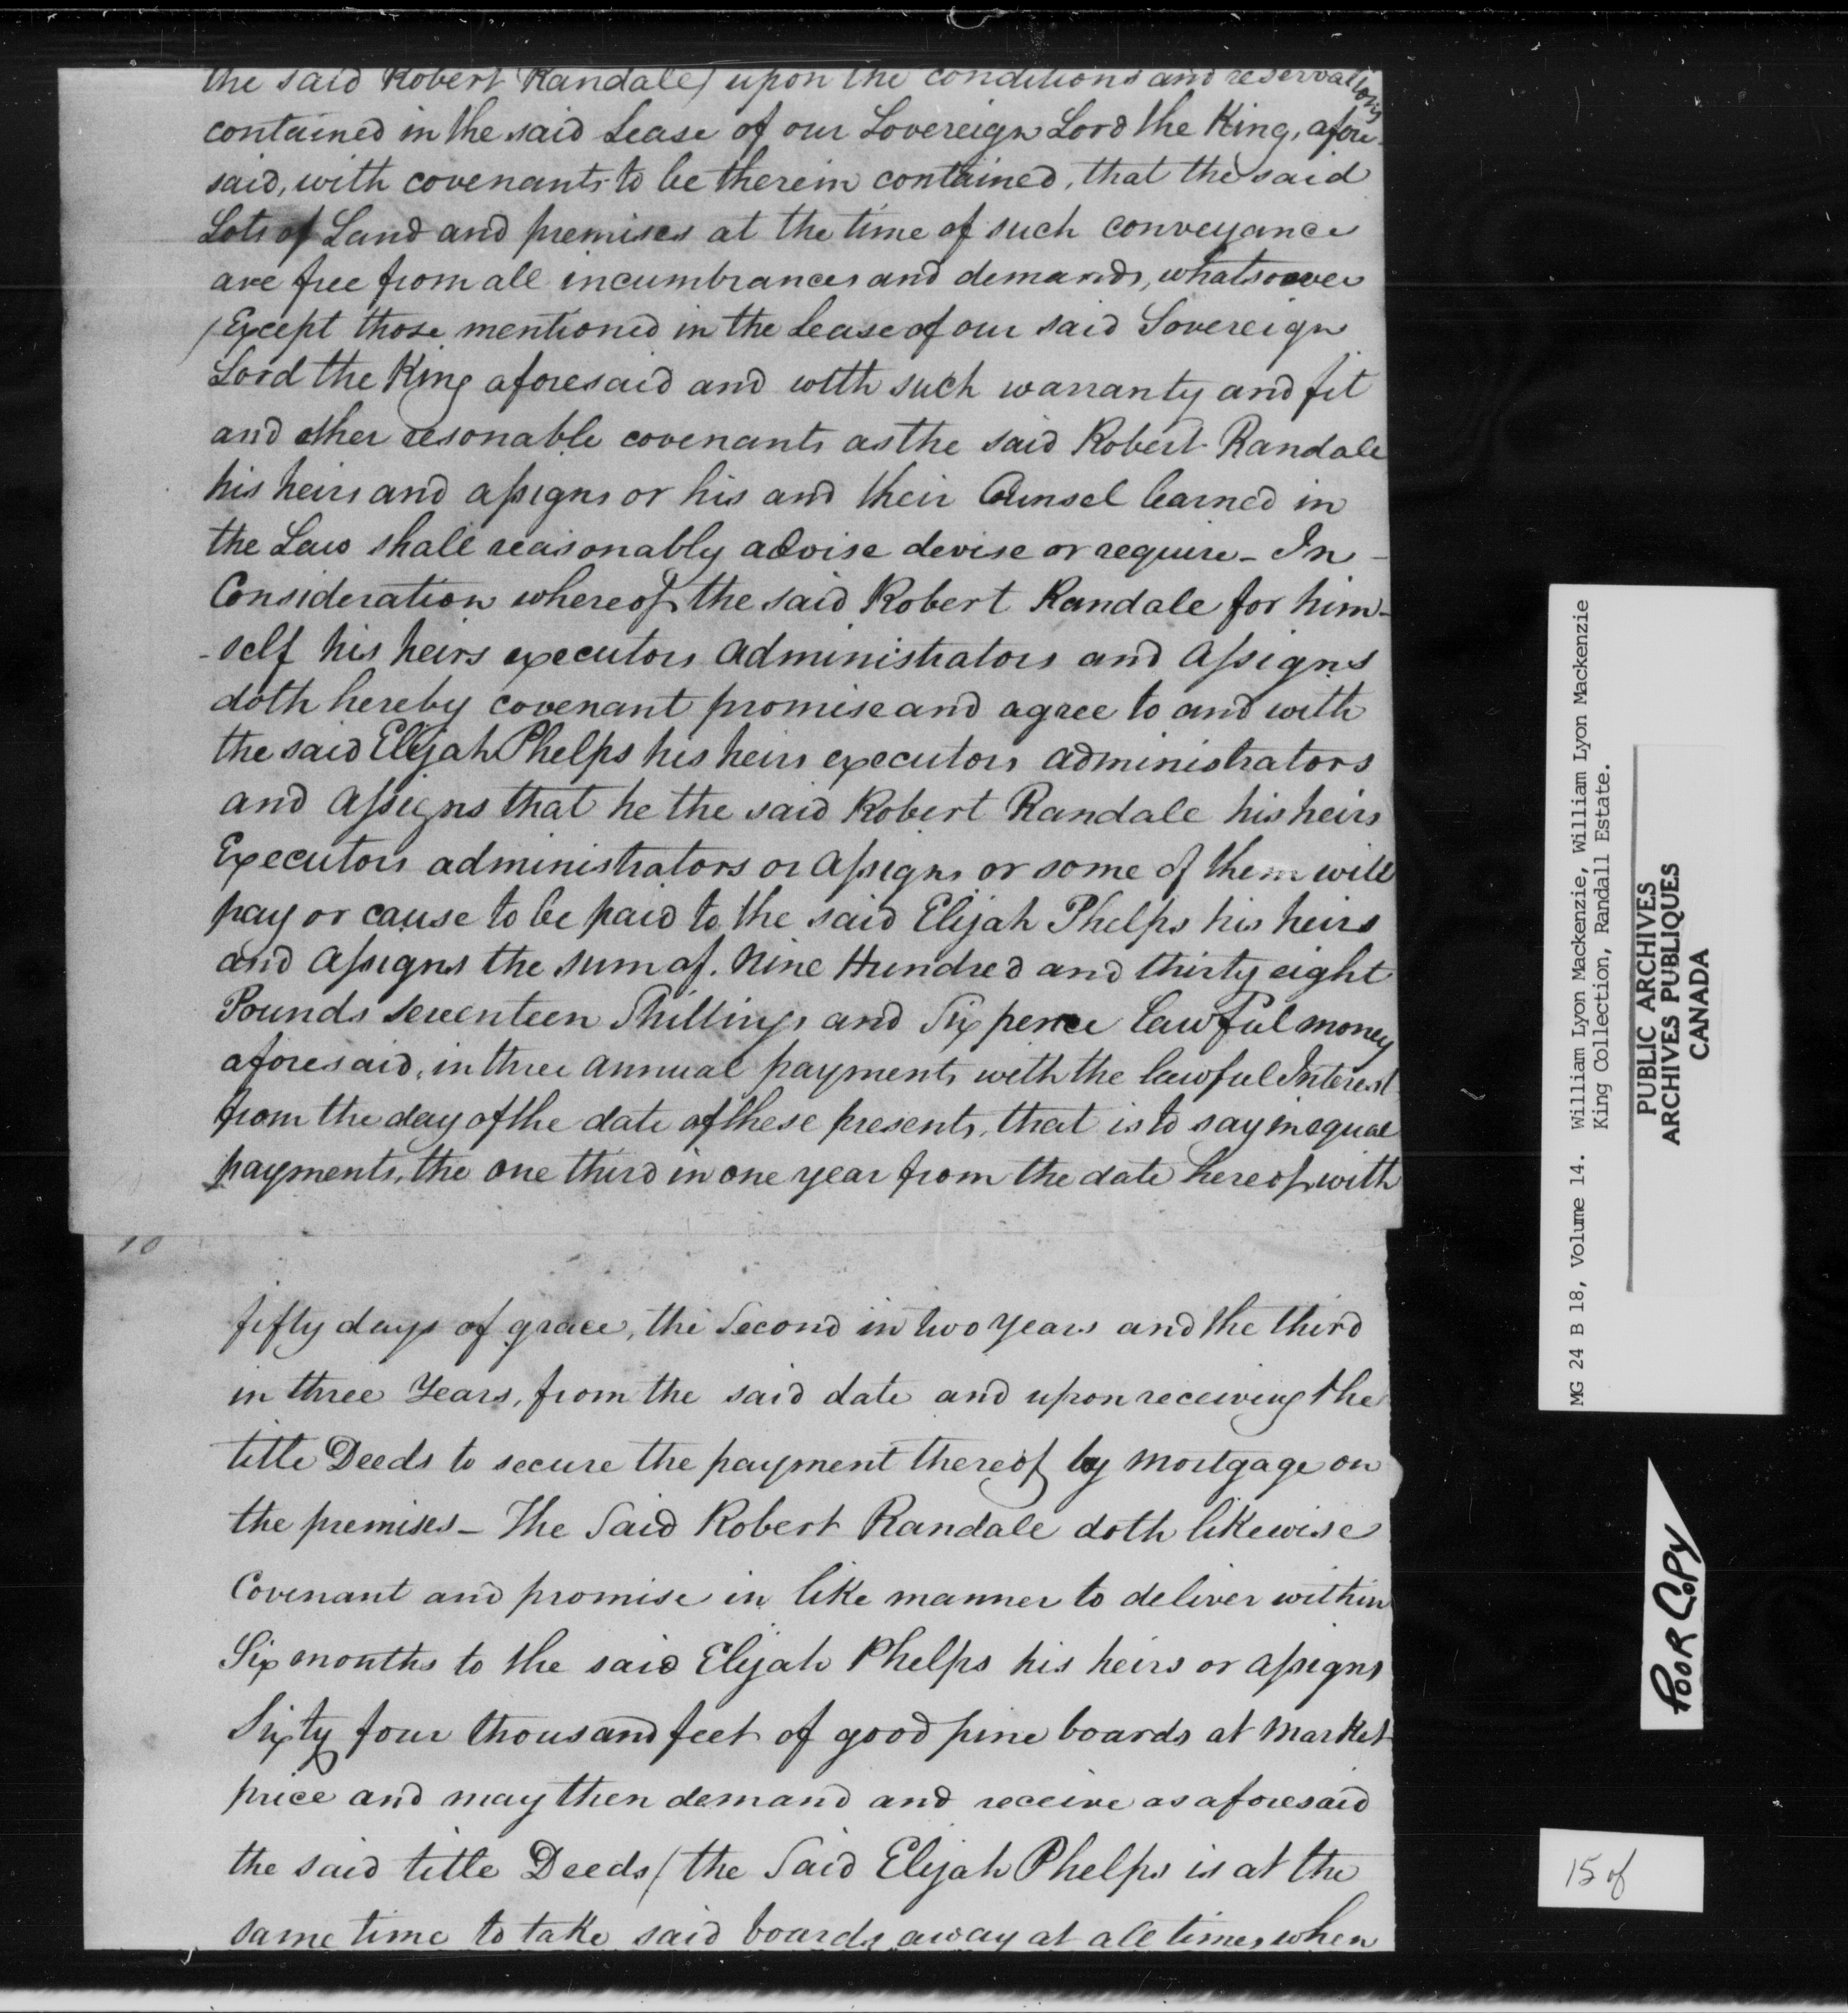 the said Robert Randale) upon the conditions and reservations
contained in the said Lease of our Sovereign Lord the King, afore-
said, with covenants to be therein contained, that the said
Lots of Land and premises at the time of such conveyance
are free from all incumbrances and demands, whatsoever
(Except those mentioned in the Lease of our said Sovereign
Lord the King aforesaid and with such warranty and fit
and other resonable covenants as the said Robert Randale
his heirs and assigns or his and their Counsel learned in
the Law shall reasonably advise devise or require - In -
Consideration whereof the said Robert Randale for him-
-self his heirs executors administrators and Assigns
doth hereby covenant promise and agree to and with
the said Elijah Phelps his heirs executors administrators
and Assigns that he the said Robert Randale his heirs
Executors administrators or Assigns or some of them will
pay or cause to be paid to the said Elijah Phelps his heirs
and Assigns the sum of. Nine Hundred and thirty eight
Pounds seventeen Shillings and Six pence lawful money
aforesaid, in three annual payments with the lawful Interest
from the day of the date of these presents, that is to say in equal
payments, the one third in one year from the date hereof, with
10
fifty days of grace, the Second in two years and the third
in three Years, from the said date and upon receiving the
title Deeds to secure the payment thereof by Mortgage on
the premises - The Said Robert Randale doth likewise
Covenant and promise in like manner to deliver within
Six months to the said Elijah Phelps his heirs or assigns
Sixty four thousand feet of good pine boards at Market
price and may then demand and receive as aforesaid
the said title Deeds (the Said Elijah Phelps is at the
same time to take said boards away at all times when
MG 24 B 18, Volume 14. William Lyon Mackenzie, William Lyon Mackenzie
King Collection, Randall Estate.
PUBLIC ARCHIVES
ARCHIVES PUBLIQUES
CANADA
POOR COPY
15 of